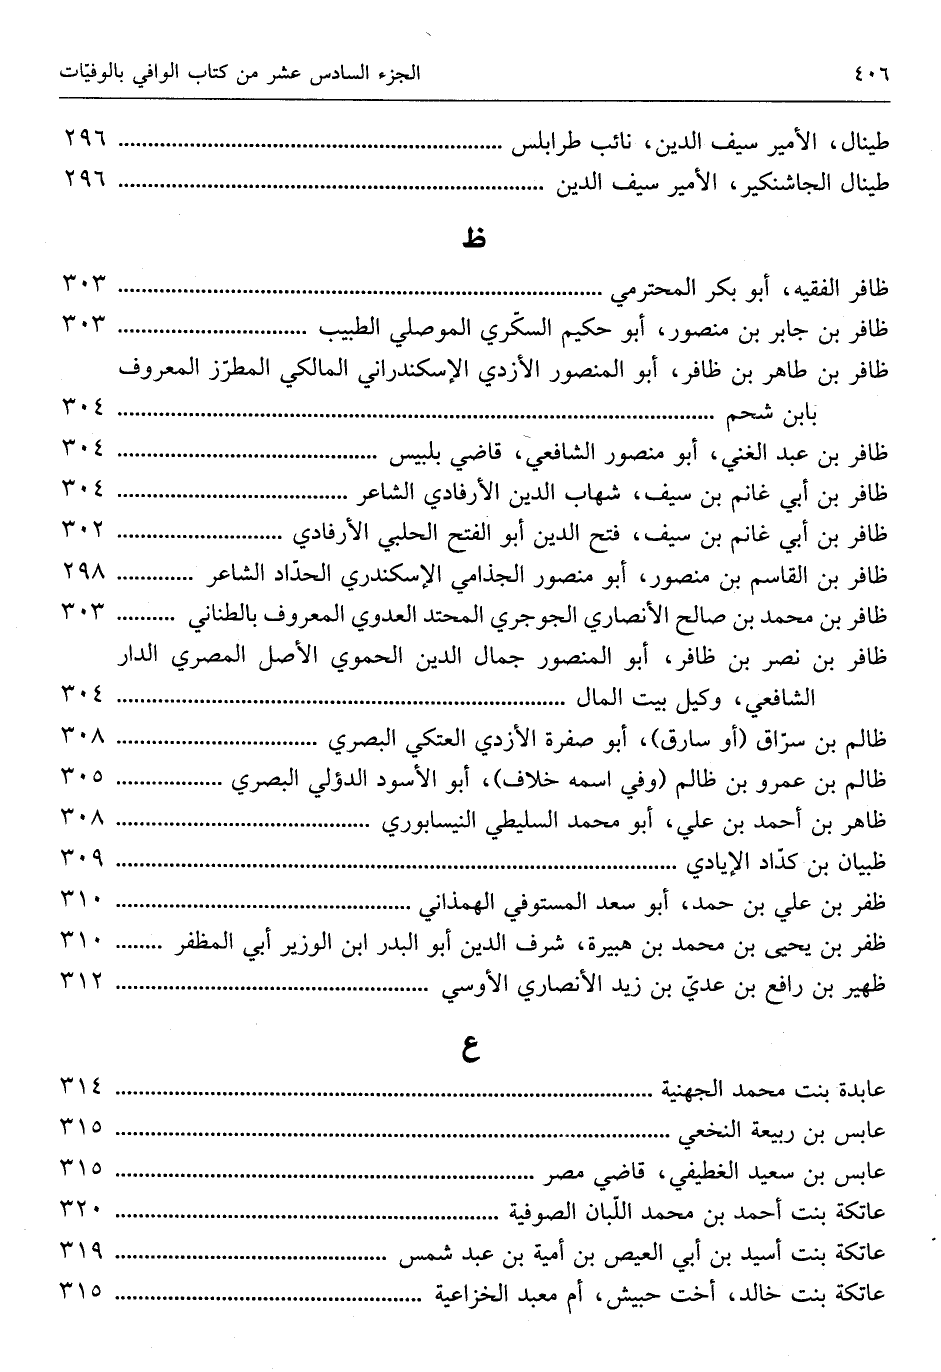 ٤٠٦ الجزء السادس عشر من كتاب الوافي بالوفيّات
طينال، الأمير سيف الدين، نائب طرابلس ........ ٢٩٦
طينال الجاشنكير، الأمير سيف الدين ........ ٢٩٦
ظ
ظافر الفقيه، أبو بكر المحترمي ........ ٣٠٣
ظافر بن جابر بن منصور، أبو حكيم السكّري الموصلي الطبيب ........ ٣٠٣
ظافر بن طاهر بن ظافر، أبو المنصور الأزدي الإسكندراني المالكي المطرّز المعروف
بابن شحم ........ ٣٠٤
ظافر بن عبد الغني، أبو منصور الشافعي، قاضي بلبيس ........ ٣٠٤
ظافر بن أبي غانم بن سيف، شهاب الدين الأرفادي الشاعر ........ ٣٠٤
ظافر بن أبي غانم بن سيف، فتح الدين أبو الفتح الحلبي الأرفادي ........ ٣٠٢
ظافر بن القاسم بن منصور، أبو منصور الجذامي الإسكندري الحدّاد الشاعر ........ ٢٩٨
ظافر بن محمد بن صالح الأنصاري الجوجري المحتد العدوي المعروف بالطناني ........ ٣٠٣
ظافر بن نصر بن ظافر، أبو المنصور جمال الدين الحموي الأصل المصري الدار
الشافعي، وكيل بيت المال ........ ٣٠٤
ظالم بن سرّاق (أو سارق)، أبو صفرة الأزدي العتكي البصري ........ ٣٠٨
ظالم بن عمرو بن ظالم (وفي اسمه خلاف)، أبو الأسود الدؤلي البصري ........ ٣٠٥
ظاهر بن أحمد بن علي، أبو محمد السليطي النيسابوري ........ ٣٠٨
ظبيان بن كدّاد الإيادي ........ ٣٠٩
ظفر بن علي بن حمد، أبو سعد المستوفي الهمذاني ........ ٣١٠
ظفر بن يحيى بن محمد بن هبيرة، شرف الدين أبو البدر ابن الوزير أبي المظفر ........ ٣١٠
ظهير بن رافع بن عديّ بن زيد الأنصاري الأوسي ........ ٣١٢
ع
عابدة بنت محمد الجهنية ........ ٣١٤
عابس بن ربيعة النخعي ........ ٣١٥
عابس بن سعيد الغطيفي، قاضي مصر ........ ٣١٥
عاتكة بنت أحمد بن محمد اللّبان الصوفية ........ ٣٢٠
عاتكة بنت أسيد بن أبي العيص بن أمية بن عبد شمس ........ ٣١٩
عاتكة بنت خالد، أخت حبيش، أم معبد الخزاعية ........ ٣١٥